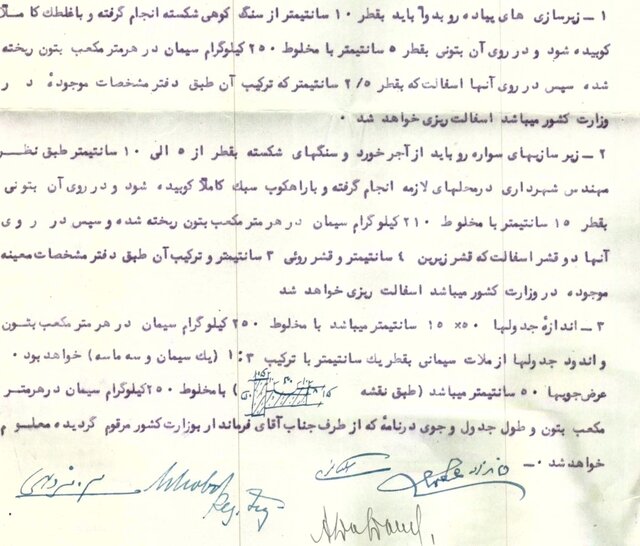 ۱ ــ زیرسازی های پیاده رو بدواً باید بقطر ۱۰ سانتیمتر از سنگ کوهی شکسته انجام گرفته و باغلطك کاملاً
کوبیده شود و در روی آن بتونی بقطر ۵ سانتیمتر با مخلوط ۲۵۰ کیلوگرام سیمان در هرمتر مکعب بتون ریخته
شده سپس در روی آنها اسفالت که بقطر ۲/۵ سانتیمتر که ترکیب آن طبق دفتر مشخصات موجودهٔ در
وزارت کشور میباشد اسفالت ریزی خواهد شد ۰
۲ ــ زیر سازیهای سواره رو باید از آجر خورد و سنگهای شکسته بقطر از ۵ الی ۱۰ سانتیمتر طبق نظر
مهندس شهرداری در محلهای لازمه انجام گرفته و باراهکوب سبك کاملاً کوبیده شود و در روی آن بتونی
بقطر ۱۵ سانتیمتر با مخلوط ۲۱۰ کیلوگرام سیمان در هر متر مکعب بتون ریخته شده و سپس در روی
آنها دو قشر اسفالت که قشر زیرین ٤ سانتیمتر و قشر روئی ۳ سانتیمتر و ترکیب آن طبق دفتر مشخصات معینه
موجوده در وزارت کشور میباشد اسفالت ریزی خواهد شد
۳ ــ اندازهٔ جدولها ۵۰ × ۱۵ سانتیمتر میباشد با مخلوط ۲۵۰ کیلوگرام سیمان در هر متر مکعب بتون
و اندود جدولها از ملات سیمانی بقطر یك سانتیمتر با ترکیب ۱:۳ (یك سیمان و سه ماسه) خواهد بود ۰
عرض جویها ۵۰ سانتیمتر میباشد (طبق نقشه ) با مخلوط ۲۵۰ کیلوگرام سیمان در هرمتر
مکعب بتون و طول جدول و جوی در نامهٔ که از طرف جناب آقای فرماندار بوزارت کشور مرقوم گردیده معلوم
خواهد شد ۰ــ